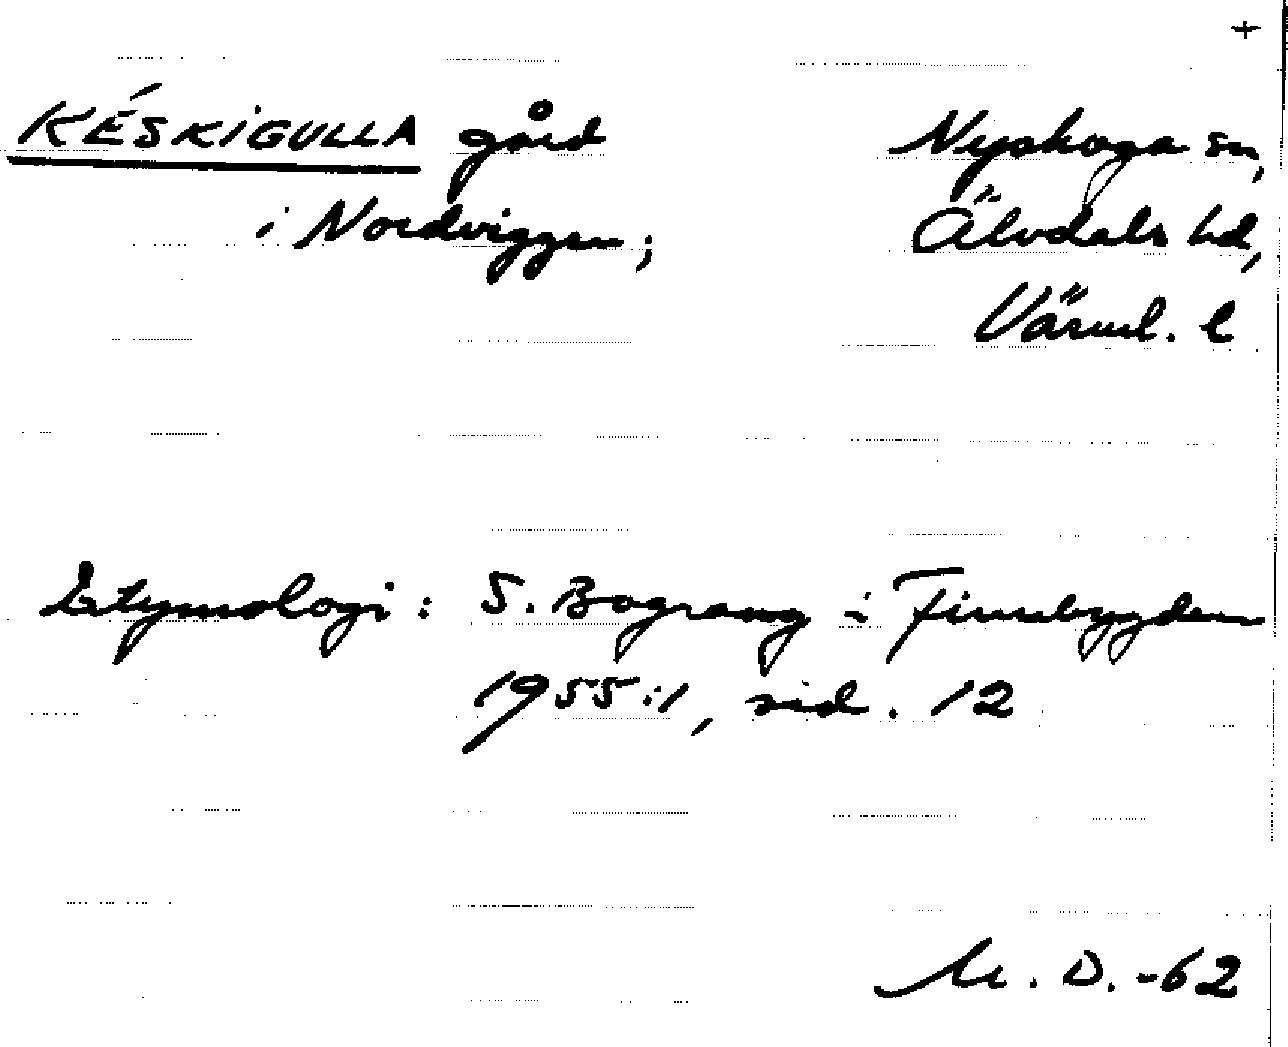 +
KÉSKIGULLA gård Nyskoga sn,
i Nordviggen; Älvdals hd,
Värml. l
Etymologi: S. Bograng i Finnebygden
1955:1, sid. 12
M. D. -62